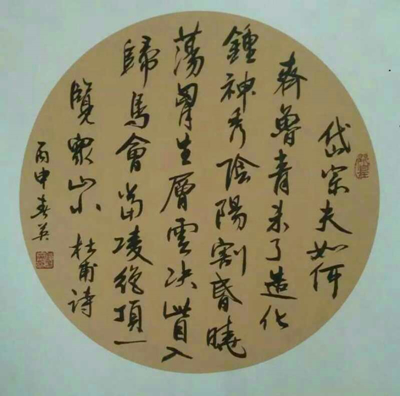 岱宗夫如何
齊魯青未了造化
鍾神秀陰陽割昏曉
蕩胷生層雲决眥入
歸鳥會當凌絶頂一
覽衆山小 杜甫詩
丙申春英